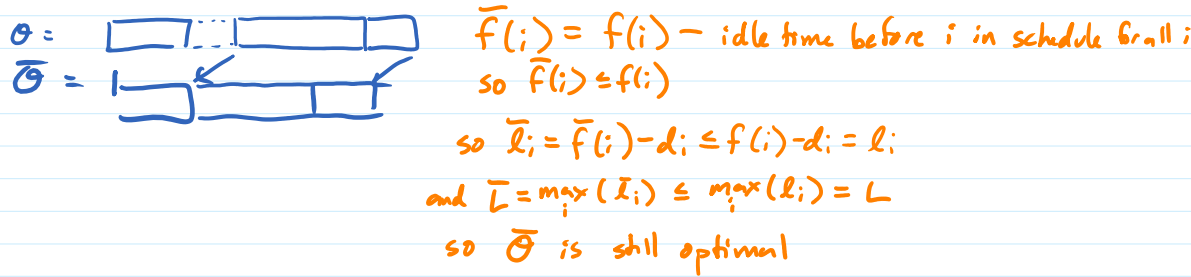 Θ = f̅(i) = f(i) - idle time before i in schedule for all i
Θ̅ = so f̅(i) ≤ f(i)
so l̅ᵢ = f̅(i) - dᵢ ≤ f(i) - dᵢ = lᵢ
and L̅ = maxᵢ (l̅ᵢ) ≤ maxᵢ (lᵢ) = L
so Θ̅ is still optimal